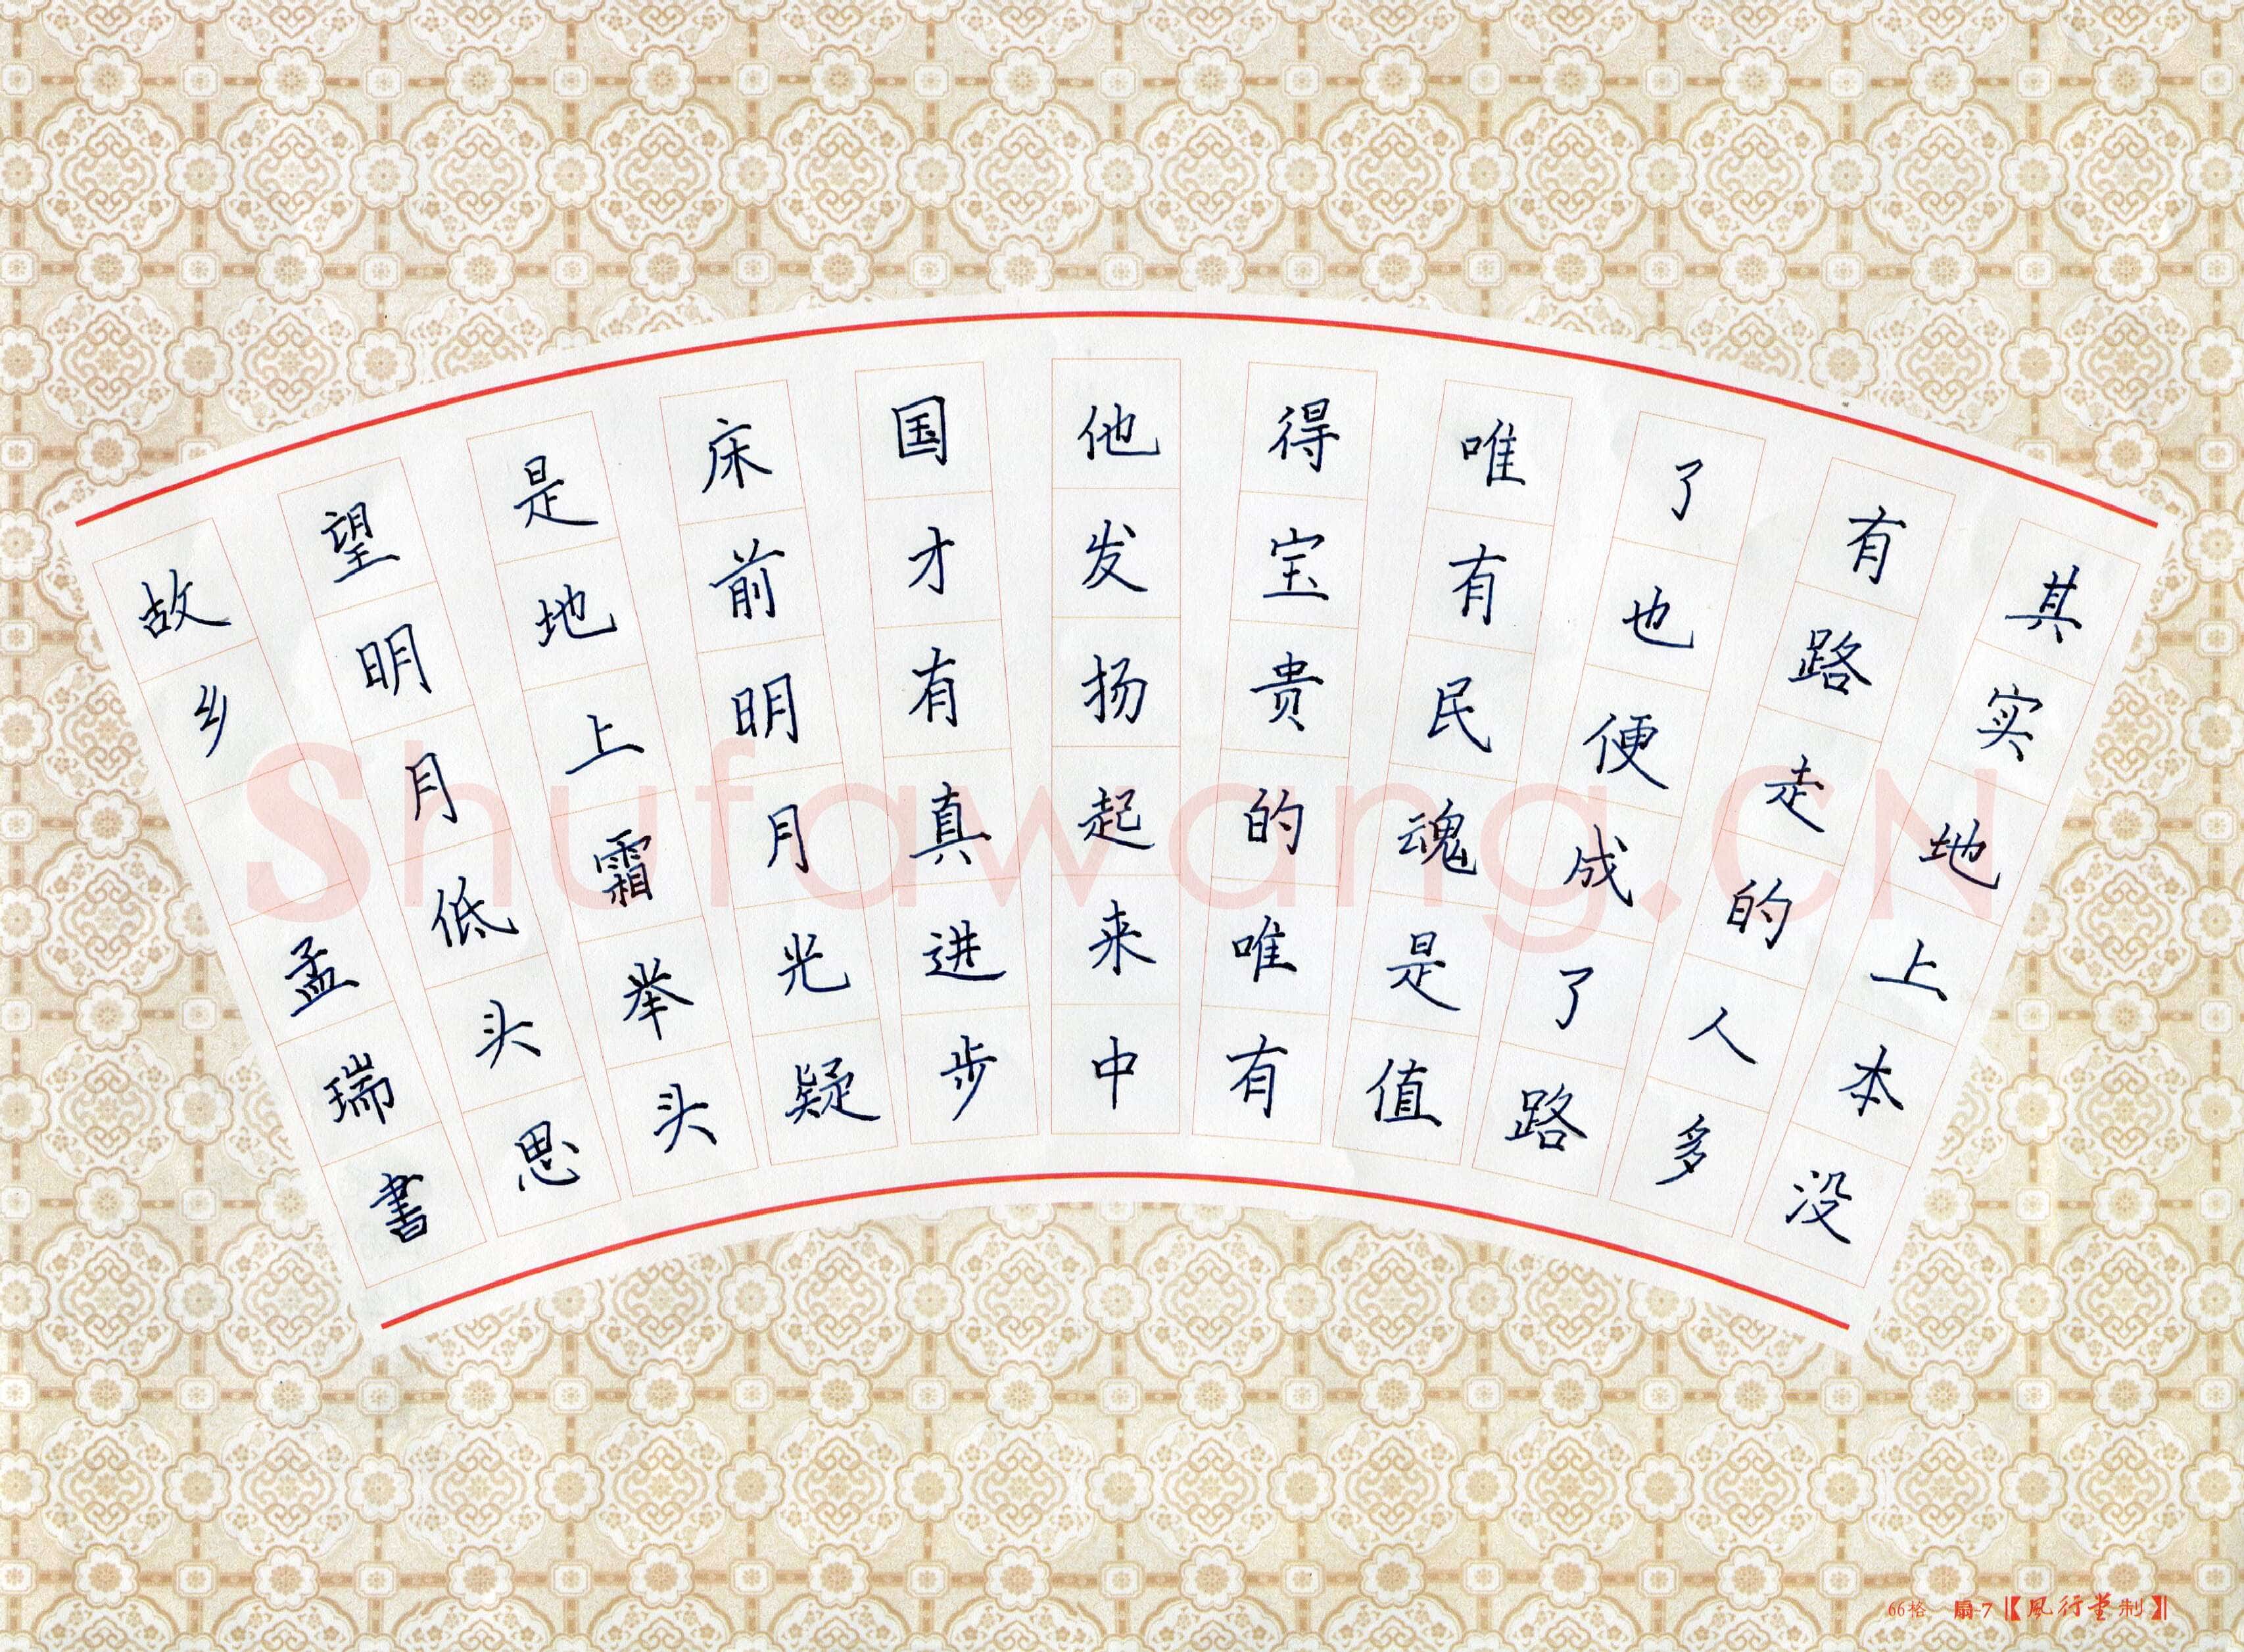 其实地上本没
有路走的人多
了也便成了路
唯有民魂是值
得宝贵的唯有
他发扬起来中
国才有真进步
床前明月光疑
是地上霜举头
望明月低头思
故乡 孟瑞書
Shufawang.CN
66格 扇-7【風行堂制】